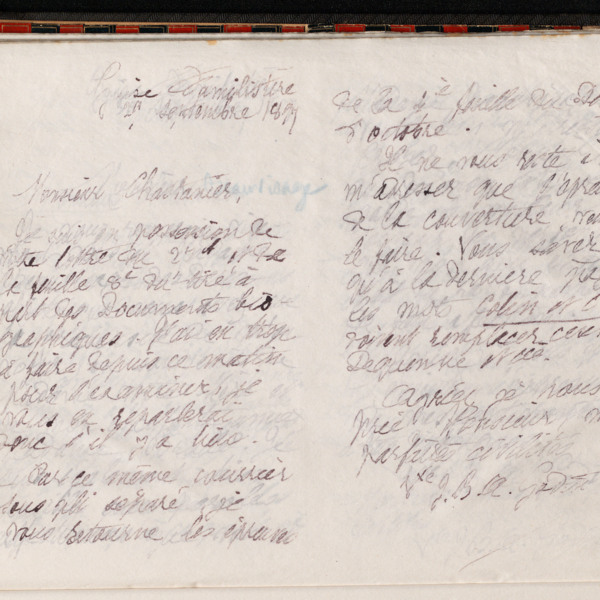 Guise Familistère
2 Septembre 1897
Monsieur Chastanier,
Je suis en possession de
votre lettre du 2 et de
la feuille 8e du tiré à
part des Documents bio
graphiques. J'ai eu trop
à faire depuis ce matin
pour l'examiner, je
vous en reparlerai
donc s'il y a lieu.
Par ce même courrier
sous pli séparé je
vous retourne les épreuves
de la 4e feuille du
d'octobre.
Il ne vous reste
m'adresser que l'épreuve
de la couverture,
le faire. Vous savez
qu'à la dernière
les mots Colin et C
doivent remplacer
Dequenne et Cie
Agréez je vous
prie, Monsieur,
parfaite civilité
Vve J.B.A. Godin